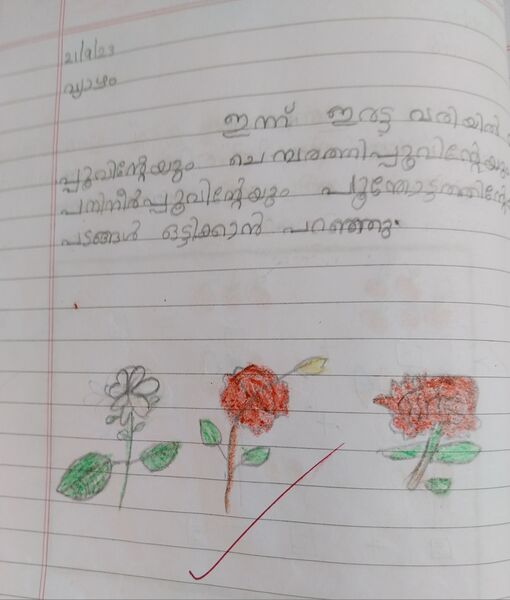 21/9/23
വ്യാഴം
ഇന്ന് ഇരട്ട വരിയിൽ
പ്പൂവിന്റേയും ചെമ്പരത്തിപ്പൂവിന്റേയും
പനിനീർപ്പൂവിന്റേയും പൂന്തോട്ടത്തിന്റേ
പടങ്ങൾ ഒട്ടിക്കാൻ പറഞ്ഞു.